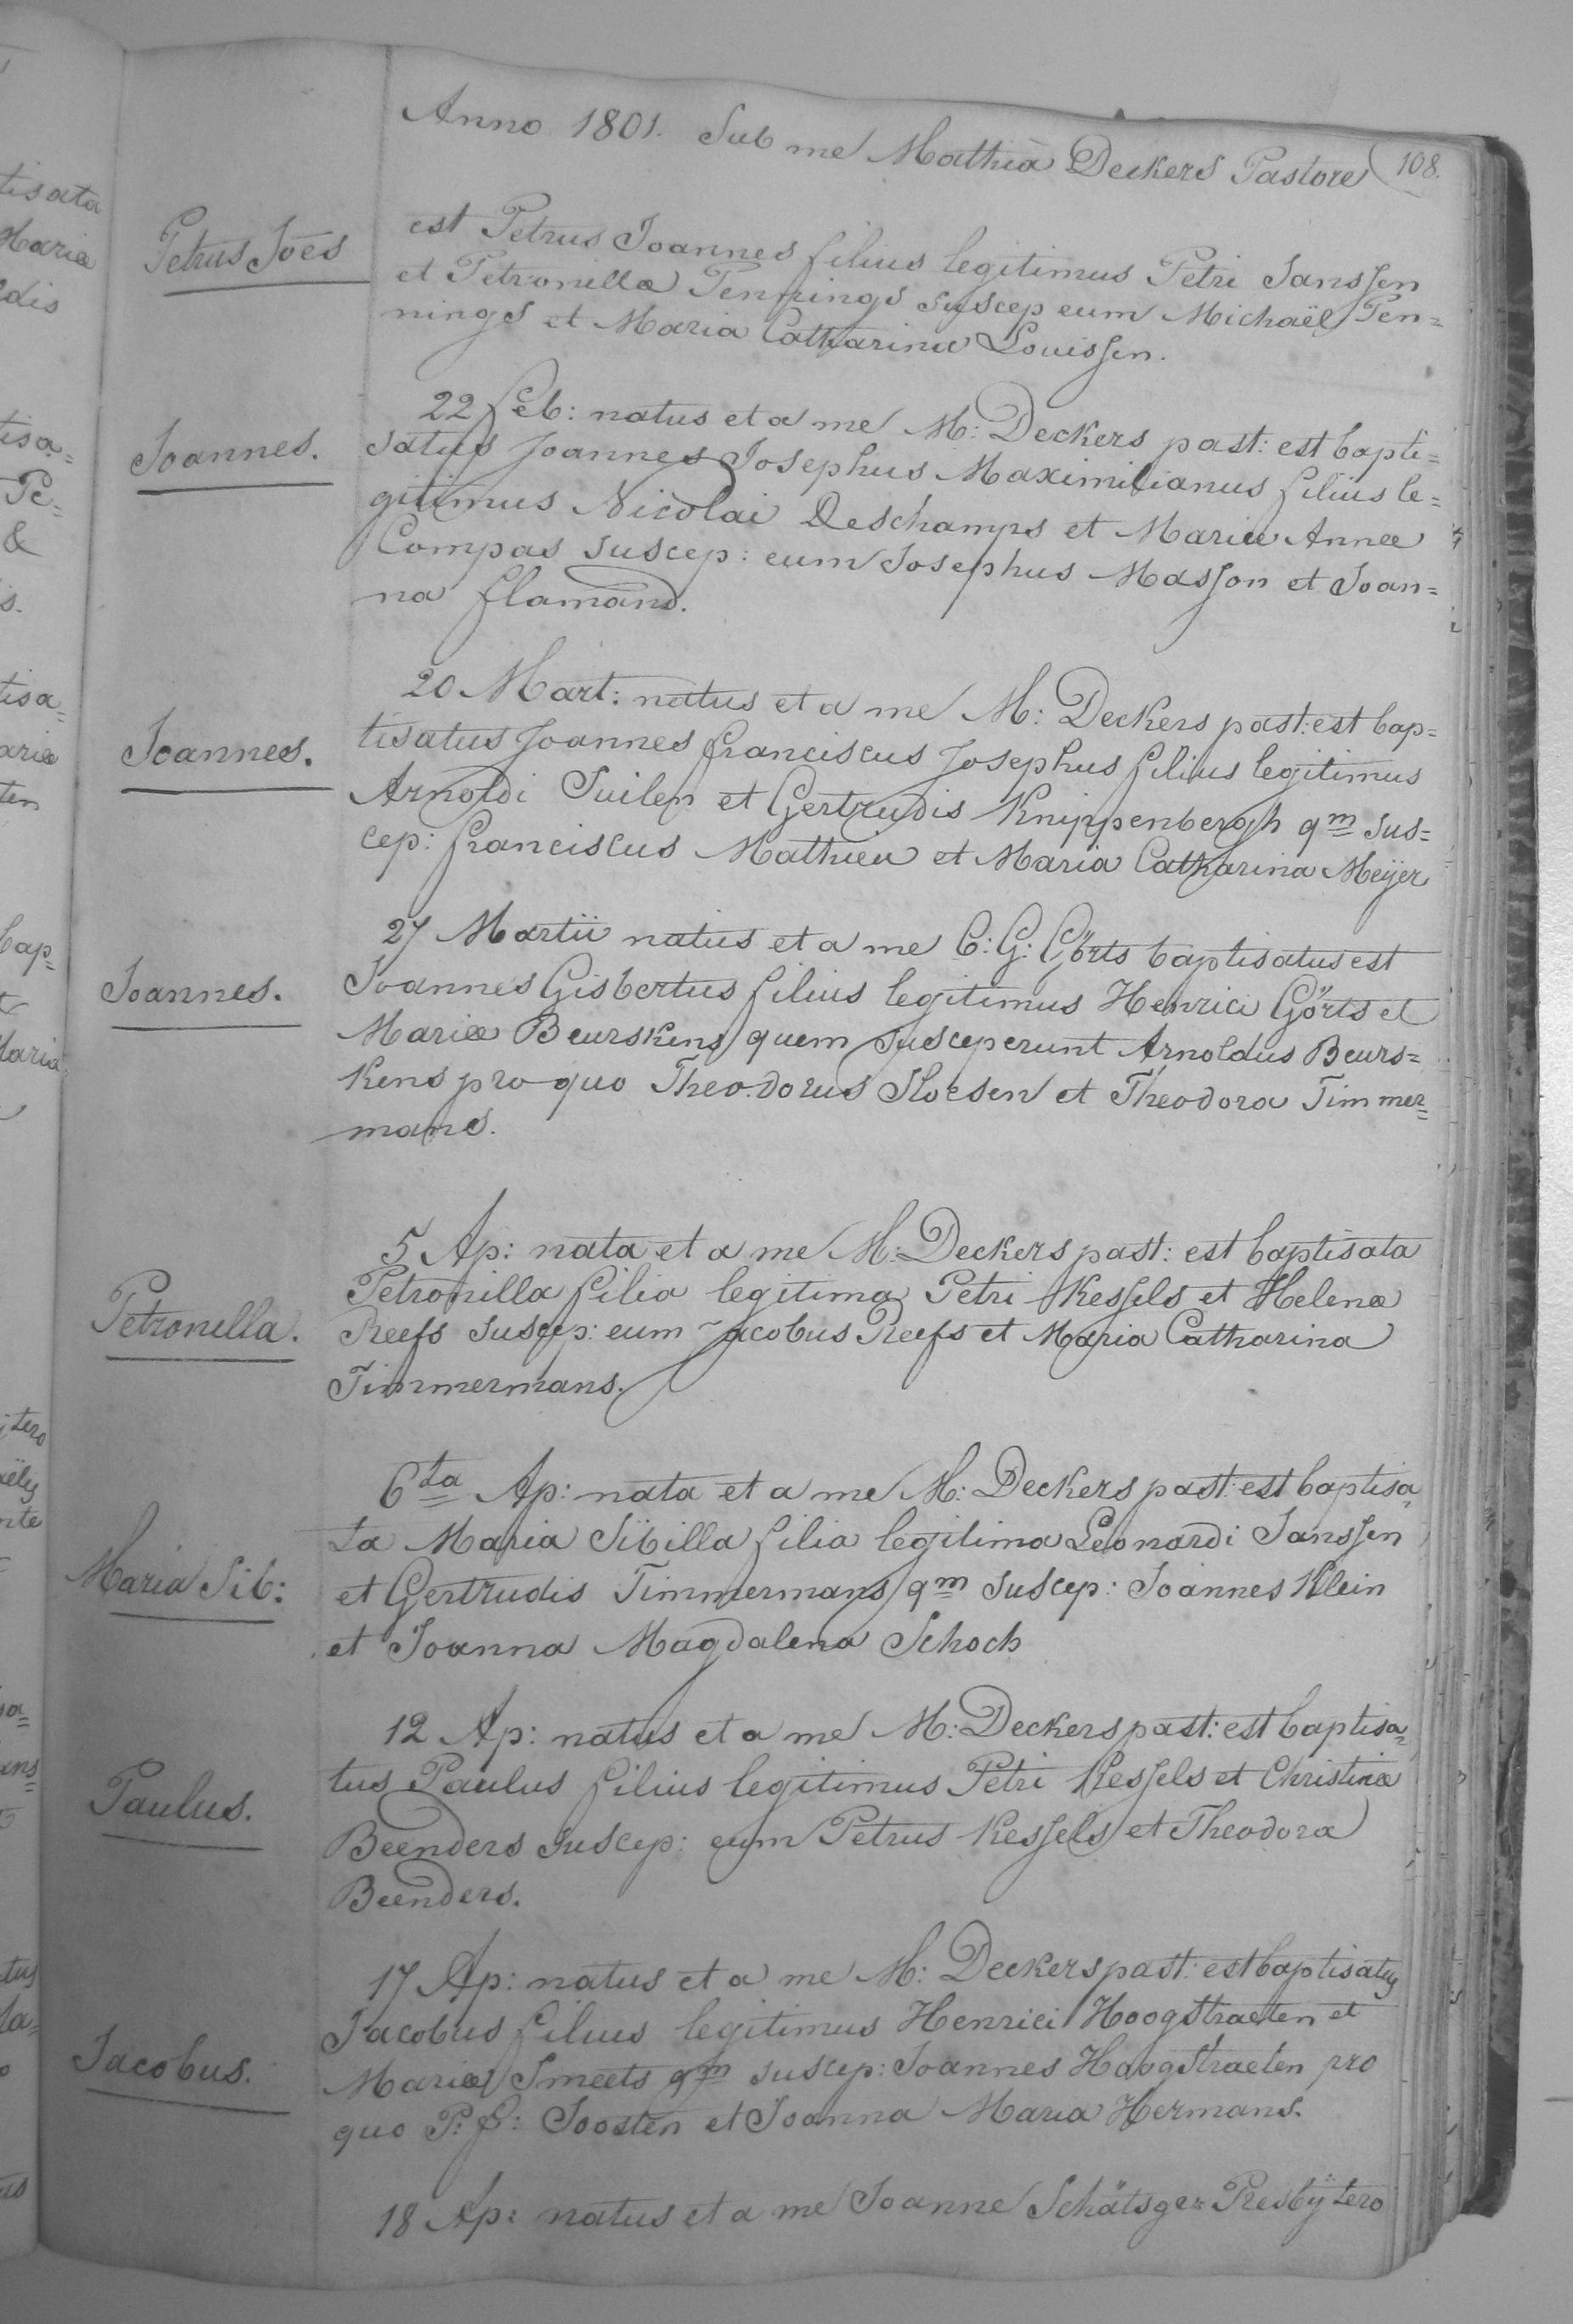 Anno 1801. Sub me Mathia Deckers Pastore 108.
Petrus Joës
est Petrus Joannes filius legitimus Petri Janssen
et Petronilla Pennings suscep eum Michaël Pen=
nings et Maria Catharina Louissen.
Joannes.
22 feb: natus et a me M: Deckers past: est bapti=
satus Joannes Josephus Maximilianus filius le=
gitimus Nicolai Deschamps et Mariæ Annæ
Compas suscep: eum Josephus Masson et Joan=
na flamand.
Joannes.
20 Mart: natus et a me M: Deckers past: est bap=
tisatus Joannes franciscus Josephus filius legitimus
Arnoldi Suilen et Gertrudis Knippenbergh qm sus=
cep: franciscus Mathieu et Maria Catharina Meÿer
Joannes.
27 Martii natus et a me C: G: Görts baptisatus est
Joannes Gisbertus filius legitimus Henrici Görts et
Mariæ Beurskens quem susceperunt Arnoldus Beurs=
kens pro quo Theodorus Sloesen et Theodora Timmer=
mans.
Petronella.
5 Ap: nata et a me M: Deckers past: est baptisata
Petronilla filia legitima Petri Kessels et Helenæ
Reefs suscep: eum Jacobus Reefs et Maria Catharina
Timmermans.
Maria Sib:
6ta Ap: nata et a me M: Deckers past: est baptisa=
ta Maria Sibilla filia legitima Leonardi Janssen
et Gertrudis Timmermans qm suscep: Joannes Klein
et Joanna Magdalena Schoch
Paulus.
12 Ap: natus et a me M: Deckers past: est baptisa=
tus Paulus filius legitimus Petri Kessels et Christinæ
Beenders suscep: eum Petrus Kessels et Theodora
Beenders.
Jacobus.
17 Ap: natus et a me M: Deckers past: est baptisatus
Jacobus filius legitimus Henrici Hoogstraeten et
Mariæ Smeets qm suscep: Joannes Hoogstraeten pro
quo P: f: Joosten et Joanna Maria Hermans.
18 Ap: natus et a me Joanne Schätsger Presbÿtero